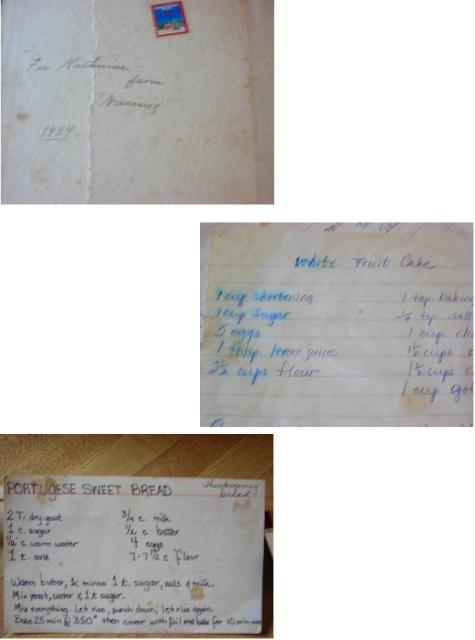 "For Katherine"
from
"Nannie"
1939
White Fruit Cake
1 cup shortening
1 cup sugar
5 eggs
1 tblsp. lemon juice
2½ cups flour
1 tsp. baking
½ tsp salt
1 cup
1½ cups
1½ cups
1 cup
PORTUGESE SWEET BREAD
Thanksgiving
bread
2 T. dry yeast
1 c. sugar
½ c. warm water
1 t. salt
¾ c. milk
½ c butter
4 eggs
7-7½ c flour
Warm butter, 1c minus 1 t. sugar, salt & milk.
Mix yeast, water & 1 t. sugar.
Mix everything. Let rise, punch down, let rise again.
Bake 25 min @ 350° then cover with foil and bake for 10 min.